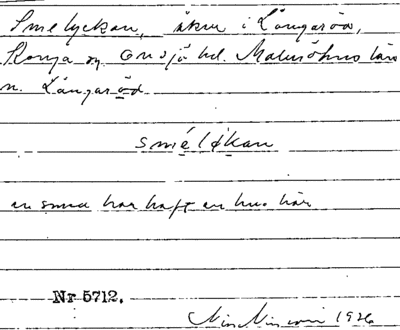 Smelyckan, åker i Långaröd,
Konga sn Onsjö hd. Malmöhus län
n. Långaröd
smélŧkan
en smed har haft en hus här
Nr 5712.
1926